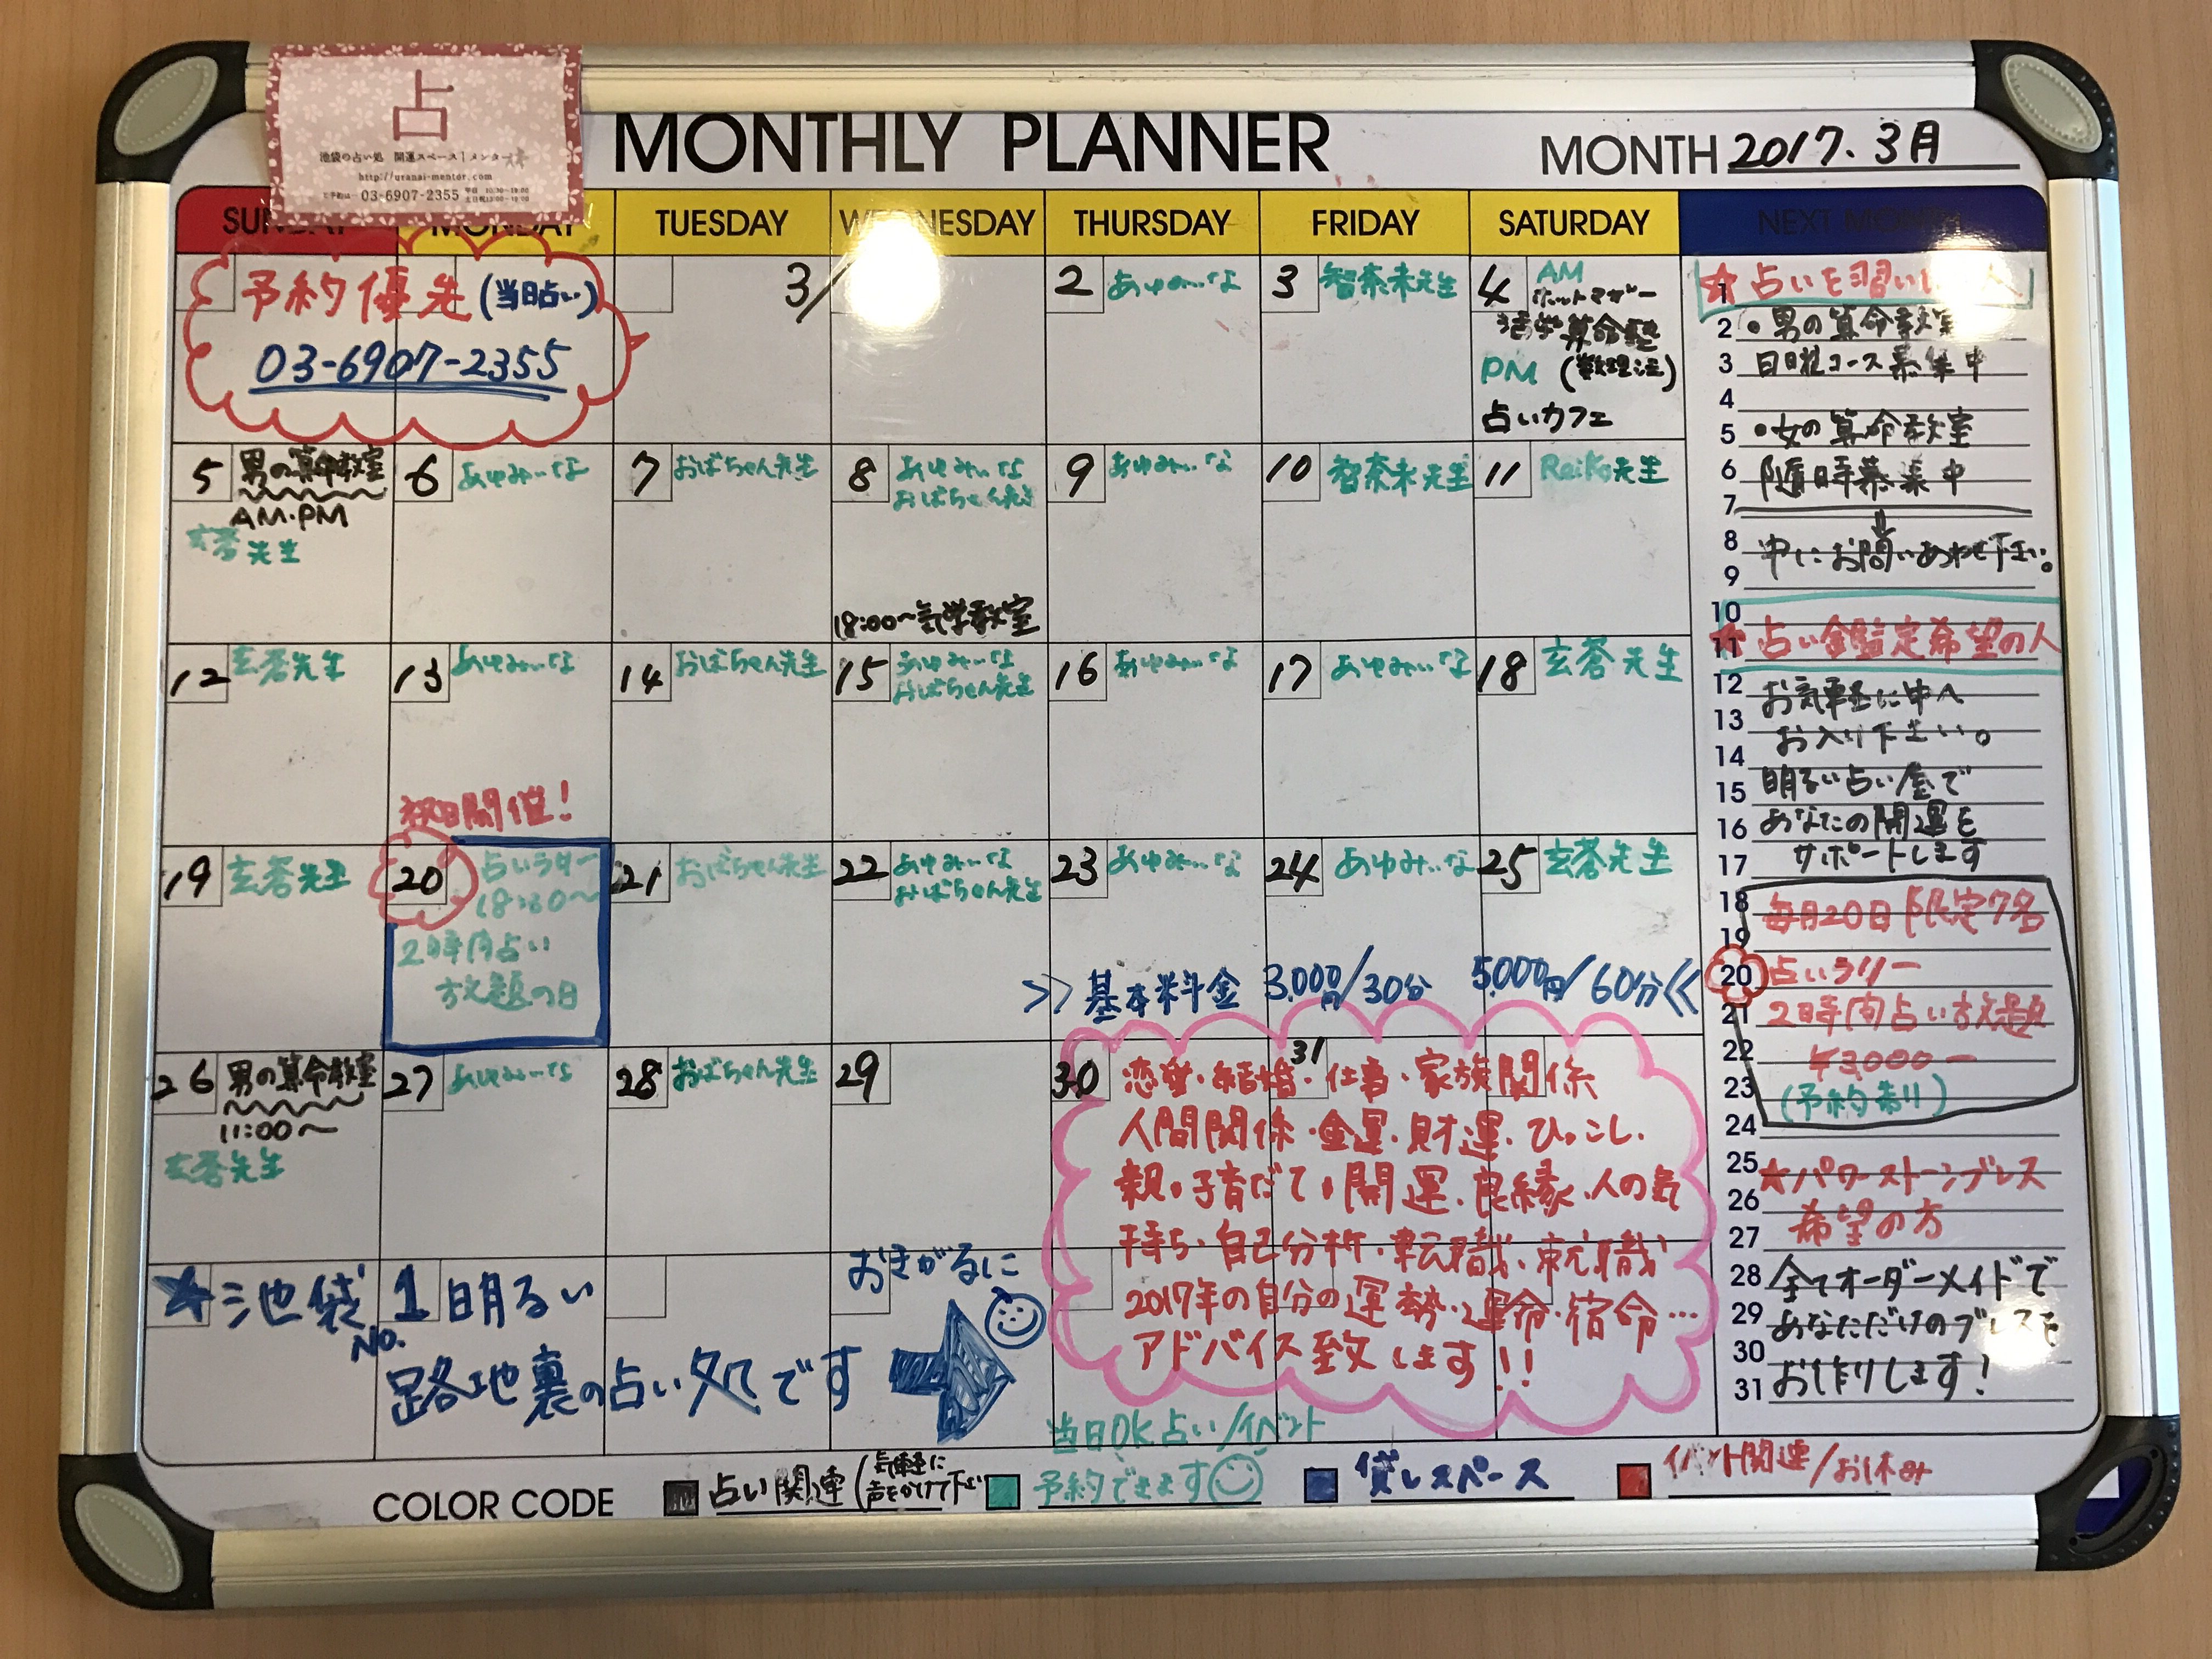 占
池袋の占い処 開運スペース｜メンター
http://uranai-mentor.com
03-6907-2355
MONTHLY PLANNER
MONTH 2017.3月
SUNDAY MONDAY TUESDAY WEDNESDAY THURSDAY FRIDAY SATURDAY
NEXT MONTH
予約優先(当日占い)
03-6907-2355
3/
2 あゆみぃな
3 智奈未先生
4 AM
ホットマガー
活学算命塾
PM (数理法)
占いカフェ
5 男の算命教室
AM.PM
玄蒼先生
6 あゆみぃな
7 おばちゃん先生
8 あゆみぃな
おばちゃん先生
18:00〜気学教室
9 あゆみぃな
10 智奈未先生
11 Reiko先生
12 玄蒼先生
13 あゆみぃな
14 おばちゃん先生
15 あゆみぃな
おばちゃん先生
16 あゆみぃな
17 あゆみぃな
18 玄蒼先生
祝日開催!
19 玄蒼先生
20 占いラリー
18:30〜
2時間占い
放題の日
21 おばちゃん先生
22 あゆみぃな
おばちゃん先生
23 あゆみぃな
24 あゆみぃな
25 玄蒼先生
≫基本料金 3,000円/30分 5,000円/60分≪
26 男の算命教室
11:00〜
玄蒼先生
27 あゆみぃな
28 おばちゃん先生
29
30
31
恋愛・結婚・仕事・家族関係
人間関係・金運・財運・ひっこし・
親・子育だて・開運・良縁・人の気
持ち・自己分析・転職・就職
2017年の自分の運勢・運命・宿命…
アドバイス致します!!
★池袋No.1明るい
路地裏の占い処です
おきがるに
当日OK占い/イベント
COLOR CODE
占い関連(気軽に
声をかけて下さい
予約できます
貸しスペース
イベント関連/お休み
1 ★占いを習い
2 •男の算命教室
3 日曜コース募集中
4
5 •女の算命教室
6 随時募集中
7
8 中にお問いあわせ下さい。
9
10
11 ★占い鑑定希望の人
12 お気軽に中へ
13 お入り下さい。
14
15 明るい占い館で
16 あなたの開運を
17 サポートします
18 毎月20日限定7名
19
20 占いラリー
21 2時間占い放題
22 ¥3,000ー
23 (予約制)
24
25 ★パワーストーンブレス
26 希望の方
27
28 全てオーダーメイドで
29 あなただけのブレスを
30
31 お作りします!